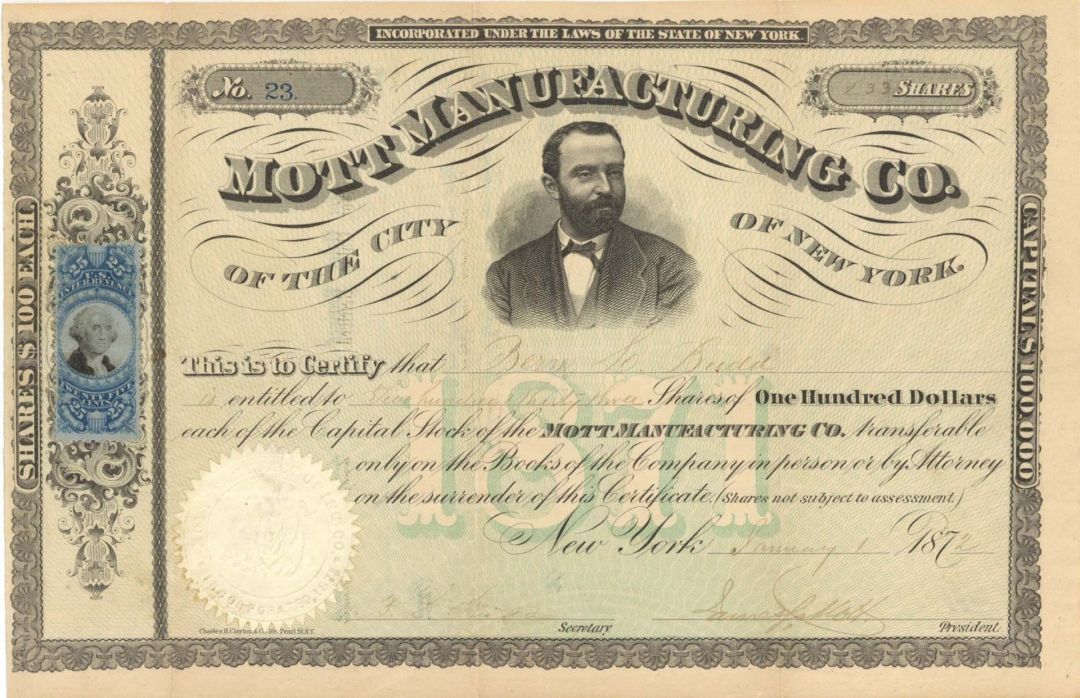 INCORPORATED UNDER THE LAWS OF THE STATE OF NEW YORK
No. 23.
233 SHARES
MOTT MANUFACTURING CO.
OF THE CITY OF NEW YORK.
SHARES $100 EACH.
CAPITAL $100,000.00
25 25
U.S.
INTER. REVENUE
TWENTY FIVE
CENTS
25 25
1871
This is to Certify that Bern Budd
is entitled to hundred thirty three Shares of One Hundred Dollars
each of the Capital Stock of the MOTT MANUFACTURING CO. transferable
only on the Books of the Company in person or by Attorney
on the surrender of this Certificate. (Shares not subject to assessment.)
New York January 1 1872
Secretary
President
Charles H. Clayton & Co., 161 Pearl St. N.Y.